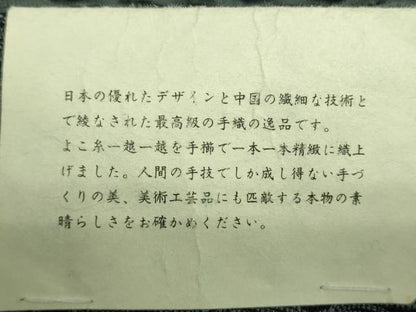 日本の優れたデザインと中国の繊細な技術と
で綾なされた最高級の手織の逸品です。
よこ糸一越一越を手櫛で一本一本精緻に織上
げました。人間の手技でしか成し得ない手づ
くりの美、美術工芸品にも匹敵する本物の素
晴らしさをお確かめください。